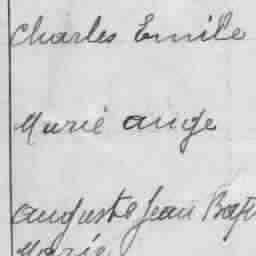 Charles Emile
Marie ange
auguste Jean Bapt
Marie